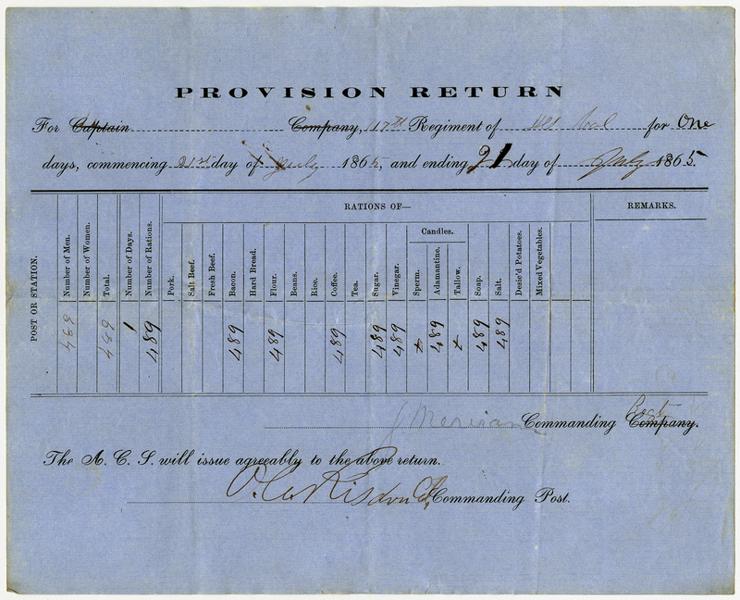 PROVISION RETURN
For Captain Company, 117th Regiment of for One
days, commencing 21st day of July 1865, and ending 21 day of July 1865
POST OR STATION.
Number of Men.
Number of Women.
Total.
Number of Days.
Number of Rations.
RATIONS OF—
Pork.
Salt Beef.
Fresh Beef.
Bacon.
Hard Bread.
Flour.
Beans.
Rice.
Coffee.
Tea.
Sugar.
Vinegar.
Candles.
Sperm.
Adamantine.
Tallow.
Soap.
Salt.
Desic'd Potatoes.
Mixed Vegetables.
REMARKS.
489 489 1 489 489 489 489 489 489 489 489 489
Commanding Company.
The A. C. S. will issue agreeably to the above return.
Risdon Commanding Post.